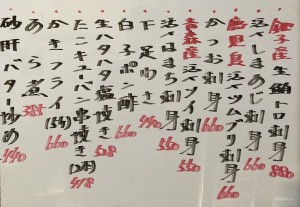 銚子産生鮪トロ刺身 880
活〆しまあじ刺身 660
活〆ツムブリ刺身 660
かつお刺身 660
青森産活〆ソイ刺身 550
活〆はまち刺身 550
下足わさ 440
白子ポン酢 660
生ハタハタ塩焼き
たこキューバン串焼き(2本) 418
かきフライ(5ケ) 660
あら煮 385
砂肝バター炒め 440